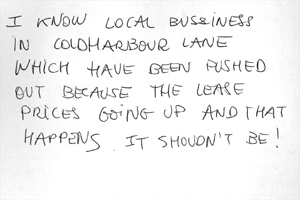 I KNOW LOCAL BUSSINESS
IN COLDHARBOUR LANE
WHICH HAVE BEEN PUSHED
OUT BECAUSE THE LEASE
PRICES GOING UP AND THAT
HAPPENS. IT SHOUDN'T BE!